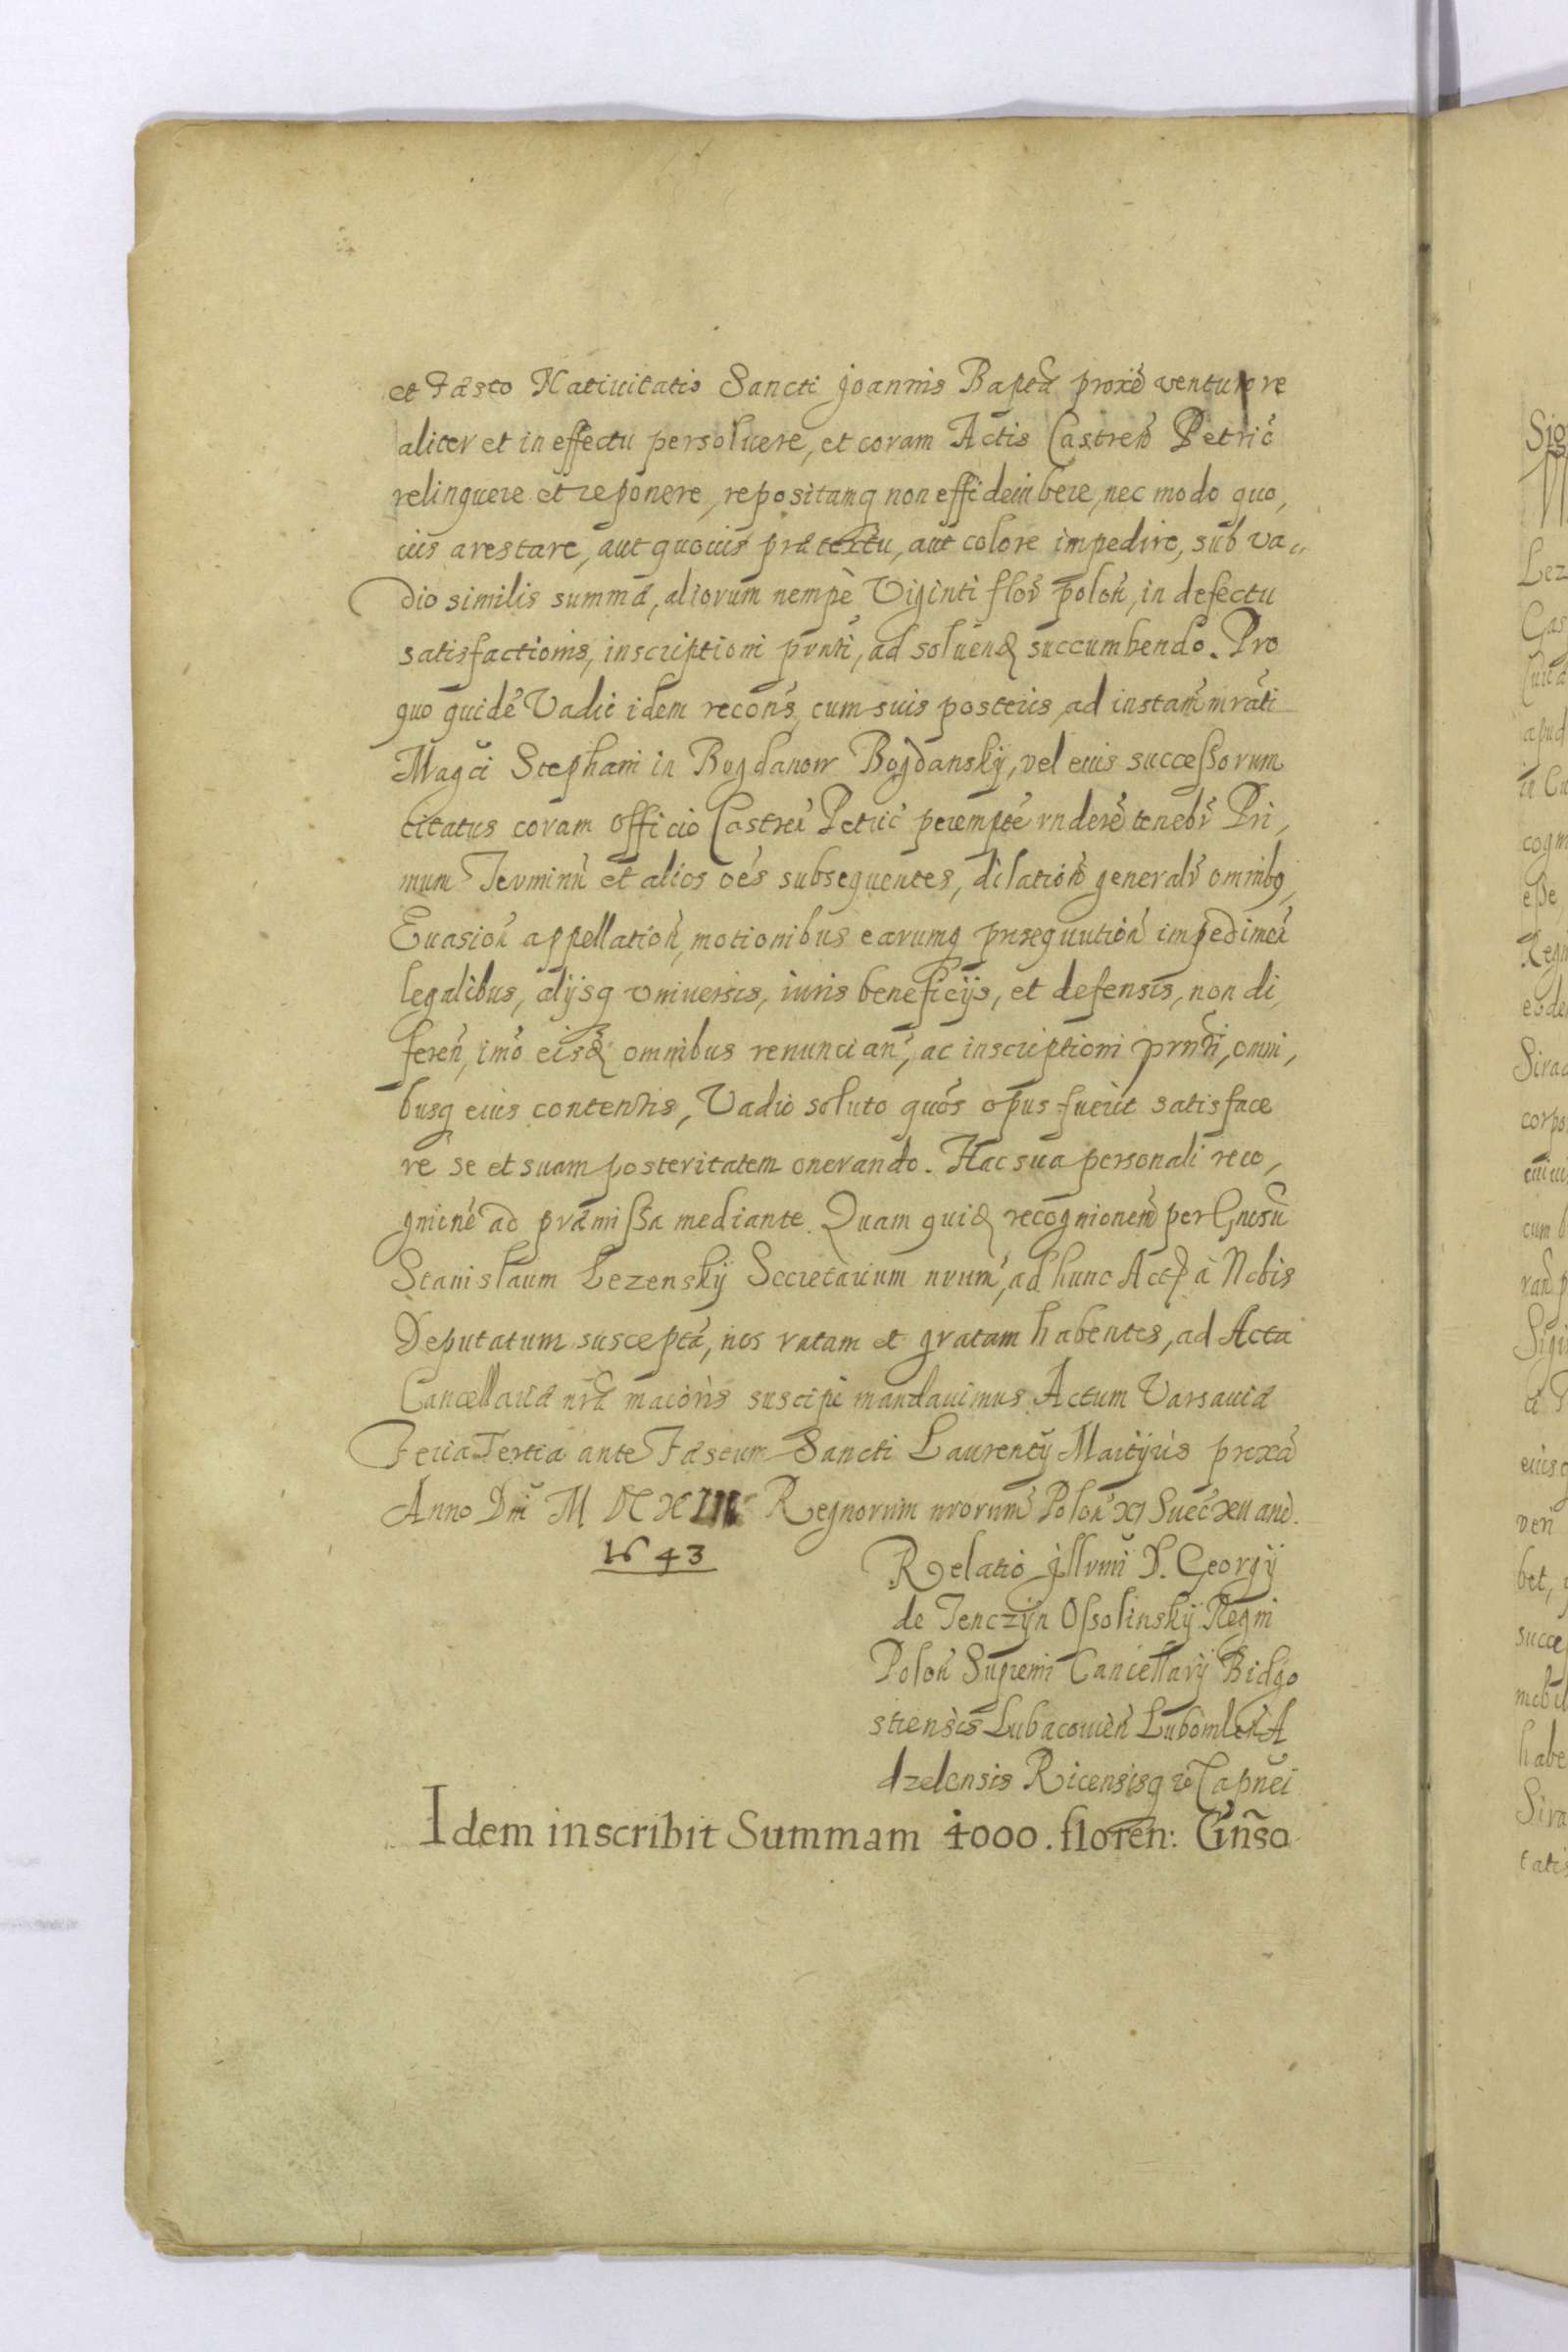 et Fæsto Natiuitatis Sancti Joannis Baptæ proxe venturo re
aliter et in effectu persoluere, et coram Actis Castren Petric
relinquere et reponere, repositamq non effi dein bere, nec modo quo,
uis arestare, aut quouis prætextu, aut colore impedire, sub va„
dio similis summæ, aliorum nempè Viginti flor polon, in defectu
satisfactionis, inscriptioni prnti, ad soluend succumbendo. Pro
quo quidē Vadio idem recons, cum suis posteris, ad instam mrati
Magci Stephani in Bogdanow Bogdanskÿ, vel eius successorum
citatus coram officio Castren Petric perempte rndere tenebr Pri,
mum Terminū et alios oēs subsequentes, dilation general omnibq,
Euasion appellation, motionibus earumq prosequution impedimen
legalibus, alijsq vniuersis, iuris beneficÿs, et defensis, non di,
feren, imo eisd omnibus renuncian, ac inscriptioni prnti, omni,
busq eius contentis, Vadio soluto quos opus fuerit satisface
re se et suam posteritatem onerando. Hac sua personali reco,
gnione ad præmissa mediante. Quam quid recognionem per Gnosū
Stanislaum Lezenskÿ Secretarium nrum, ad hunc Act à Nobis
Deputatum susceptā, nos ratam et gratam habentes, ad Acta
Cancellariæ nræ maioris suscipi mandauimus. Actum Varsauiæ
Feria Tertia ante Fæstum Sancti Laurentÿ Martÿris proxa
Anno Dni M DC X Regnorum nrorum Polon XI Suec XII anō.
1643
Relatio Jllvmi D. Georgÿ
de Tenczÿn Ossolinskÿ Regni
Polon Supremi Cancellarÿ Bidgo
stiensis Lubacouien Lubomlen A
dzelensis Ricensisq Capnei
Idem inscribit Summam 4000. floren: Gñso